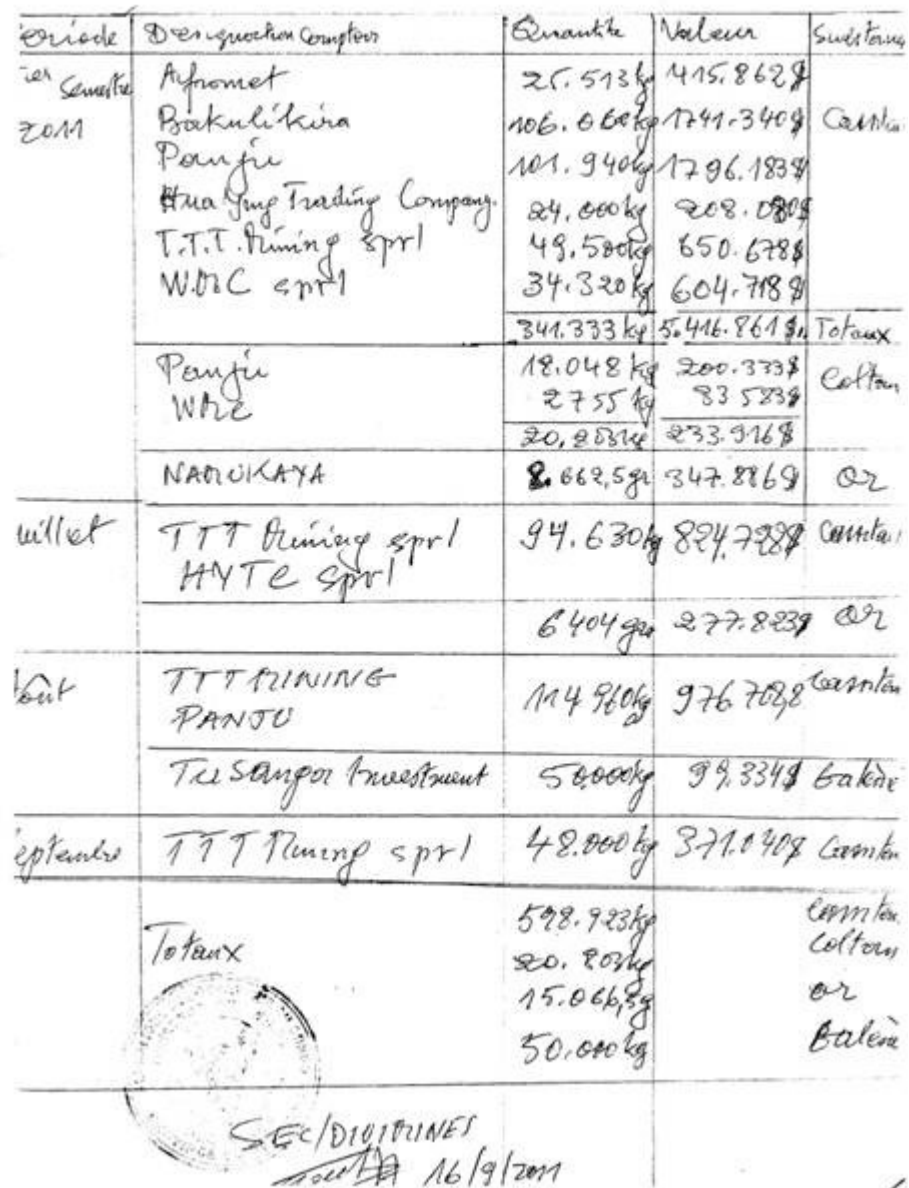 eriode Designation Comptoir Quantité Valeur Substance
ier Semestre Afromet 25.513kg 415.862$
2011 Bakulikira 106.060kg 1741.340$ Cassité
Panju 101.940kg 1796.183$
Hua Ying Trading Company. 24.000kg 208.080$
T.T.T. Mining sprl 49.500kg 650.678$
WMC sprl 34.320kg 604.718$
341.333 kg 5.416.861$. Totaux
Panju 18.048 kg 200.333$ Coltan
WMC 2755 kg 33583$
20.803kg 233.916$
NAMUKAYA 8.662,5gr 347.886$ or
uillet TTT Mining sprl 94.630kg 824.728$ Cassiter
HYTC sprl
6404 grs 277.823$ or
oût TTT MINING 114 960kg 976.708,8 Cassiter
PANJU
Tu Sangar Investment 50.000kg 99.334$ Galène
eptembre TTT Mining sprl 48.000 kg 371.040$ Cassiter
598.923kg Cassiter
Totaux 20.803kg Coltan
15.066,5g or
50.000 kg Galène
SEC/DIVIMINES
16/9/2011